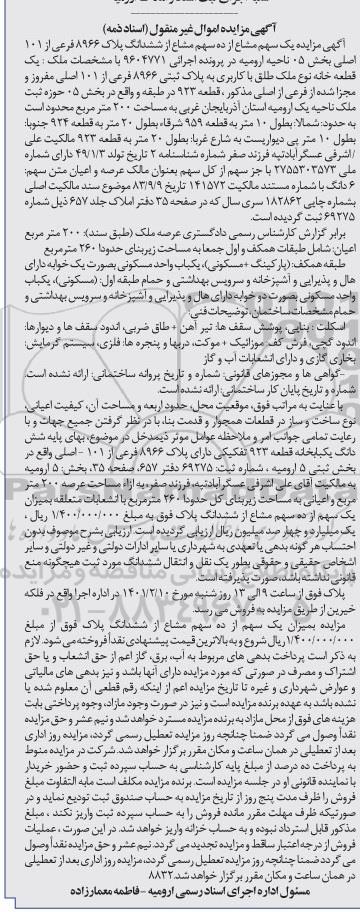 آگهی مزایده اموال غیر منقول (اسناد ذمه)
آگهی مزایده یک سهم مشاع از ده سهم مشاع از ششدانگ پلاک ۸۹۶۶ فرعی از ۱۰۱
اصلی بخش ۰۵ ناحیه ارومیه در پرونده اجرائی ۹۶۰۴۷۷۱ با مشخصات ملک : یک
قطعه خانه نوع ملک طلق با کاربری به پلاک ثبتی ۸۹۶۶ فرعی از ۱۰۱ اصلی مفروز و
مجزا شده از فرعی از اصلی مذکور ، قطعه ۹۲۳ در طبقه و واقع در بخش ۰۵ حوزه ثبت
ملک ناحیه یک ارومیه استان آذربایجان غربی به مساحت ۲۰۰ متر مربع محدود است
به حدود: شمالا: بطول ۱۰ متر به قطعه ۹۵۹ شرقا: بطول ۲۰ متر به قطعه ۹۲۴ جنوبا:
بطول ۱۰ متر پی دیواریست به شارع غربا: بطول ۲۰ متر به قطعه ۹۲۳ مالکیت علی
/اشرفی عسگرآبادتپه فرزند صفر شماره شناسنامه ۲ تاریخ تولد ۴۹/۱/۳ دارای شماره
ملی ۲۷۵۵۳۰۳۵۷۳ با جز سهم از کل سهم بعنوان مالک عرصه و اعیان متن سهم:
۶ دانگ با شماره مستند مالکیت ۱۴۱۵۷۲ تاریخ ۸۳/۹/۹ موضوع سند مالکیت اصلی
بشماره چاپی ۱۸۲۸۶۲ سری سال که در صفحه ۳۵ دفتر املاک جلد ۶۵۷ ذیل شماره
۶۹۲۷۵ ثبت گردیده است.
برابر گزارش کارشناس رسمی دادگستری عرصه ملک (طبق سند): ۲۰۰ متر مربع
اعیان: شامل طبقات همکف و اول جمعا به مساحت زیربنای حدودا ۲۶۰ متر مربع
طبقه همکف: (پارکینگ +مسکونی)، یکباب واحد مسکونی بصورت یک خوابه دارای
هال و پذیرایی و آشپزخانه و سرویس بهداشتی و حمام طبقه اول: (مسکونی)، یکباب
واحد مسکونی بصورت دو خوابه دارای هال و پذیرایی و آشپزخانه و سرویس بهداشتی و
حمام مشخصات ساختمان، توضیحات فنی:
اسکلت : بنایی، پوشش سقف ها: تیر آهن + طاق ضربی، اندود سقف ها و دیوارها:
اندود گچی، فرش کف موزائیک + موکت، دربها و پنجره ها: فلزی، سیستم گرمایش:
بخاری گازی و دارای انشعابات آب و گاز
-گواهی ها و مجوزهای قانونی: شماره و تاریخ پروانه ساختمانی: ارائه نشده است.
شماره و تاریخ پایان کار ساختمانی: ارائه نشده است.
با عنایت به مراتب فوق، موقعیت محل، حدود اربعه و مساحت آن، کیفیت اعیانی،
نوع ساخت و ساز در قطعات همجوار و قدمت بنا، با در نظر گرفتن جمیع جهات و با
رعایت تمامی جوانب امر و ملاحظه عوامل موثر ذیمدخل در موضوع، بهای پایه شش
دانگ یکبابخانه قطعه ۹۲۳ تفکیکی دارای پلاک ۸۹۶۶ فرعی از ۱۰۱ - اصلی واقع در
بخش ثبتی ۵ ارومیه ، شماره ثبت: ۶۹۲۷۵ دفتر ۶۵۷، صفحه ۳۵، بخش: ۵ ارومیه
به مالکیت آقای علی اشرفی عسگرآبادتپه، فرزند صفر، به ازاء مساحت عرصه ۲۰۰ متر
مربع و اعیانی به مساحت زیربنای کل حدودا ۲۶۰ مترمربع با انشعابات متعلقه بمیزان
یک سهم از ده سهم مشاع از ششدانگ پلاک فوق به مبلغ ۱/۴۰۰/۰۰۰/۰۰۰ ریال ،
یک میلیارد و چهار صد میلیون ریال ارزیابی گردیده است. ارزیابی بشرح موصوف بدون
احتساب هر گونه بدهی یا تعهدی به شهرداری یا سایر ادارات دولتی و غیر دولتی و سایر
اشخاص حقیقی و حقوقی بطور یک نقل و انتقال ششدانگ مورد ثبت هیچگونه منع
قانونی نداشته باشد، صورت پذیرفته است.
پلاک فوق از ساعت ۹ الی ۱۲ روز شنبه مورخ ۱۴۰۱/۲/۱۰ در اداره اجرا واقع در فلکه
خیرین از طریق مزایده به فروش می رسد.
مزایده بمیزان یک سهم از ده سهم مشاع از ششدانگ پلاک فوق از مبلغ
۱/۴۰۰/۰۰۰/۰۰۰ ریال شروع و به بالاترین قیمت پیشنهادی نقدا فروخته می شود. لازم
به ذکر است پرداخت بدهی های مربوط به آب، برق، گاز اعم از حق انشعاب و یا حق
اشتراک و مصرف در صورتی که مورد مزایده دارای آنها باشد و نیز بدهی های مالیاتی
و عوارض شهرداری و غیره تا تاریخ مزایده اعم از اینکه رقم قطعی آن معلوم شده یا
نشده باشد به عهده برنده مزایده است و نیز در صورت وجود مازاد، وجوه پرداختی بابت
هزینه های فوق از محل مازاد به برنده مزایده مسترد خواهد شد و نیم عشر و حق مزایده
نقدا وصول می گردد ضمنا چنانچه روز مزایده تعطیل رسمی گردد، مزایده روز اداری
بعد از تعطیلی در همان ساعت و مکان مقرر برگزار خواهد شد. شرکت در مزایده منوط
به پرداخت ده درصد از مبلغ پایه کارشناسی به حساب سپرده ثبت و حضور خریدار
با نماینده قانونی او در جلسه مزایده است. برنده مزایده مکلف است مابه التفاوت مبلغ
فروش را ظرف مدت پنج روز از تاریخ مزایده به حساب صندوق ثبت تودیع نماید و در
صورتیکه ظرف مهلت مقرر مانده فروش را به حساب سپرده ثبت واریز نکند ، مبلغ
مذکور قابل استرداد نبوده و به حساب خزانه واریز خواهد شد. در این صورت ، عملیات
فروش از درجه اعتبار ساقط و مزایده تجدید می گردد. نیم عشر و حق مزایده نقدا وصول
می گردد ضمنا چنانچه روز مزایده تعطیل رسمی گردد، مزایده روز اداری بعد از تعطیلی
در همان ساعت و مکان مقرر برگزار خواهد شد. ۸۸۳۲
مسئول اداره اجرای اسناد رسمی ارومیه -فاطمه معمارزاده